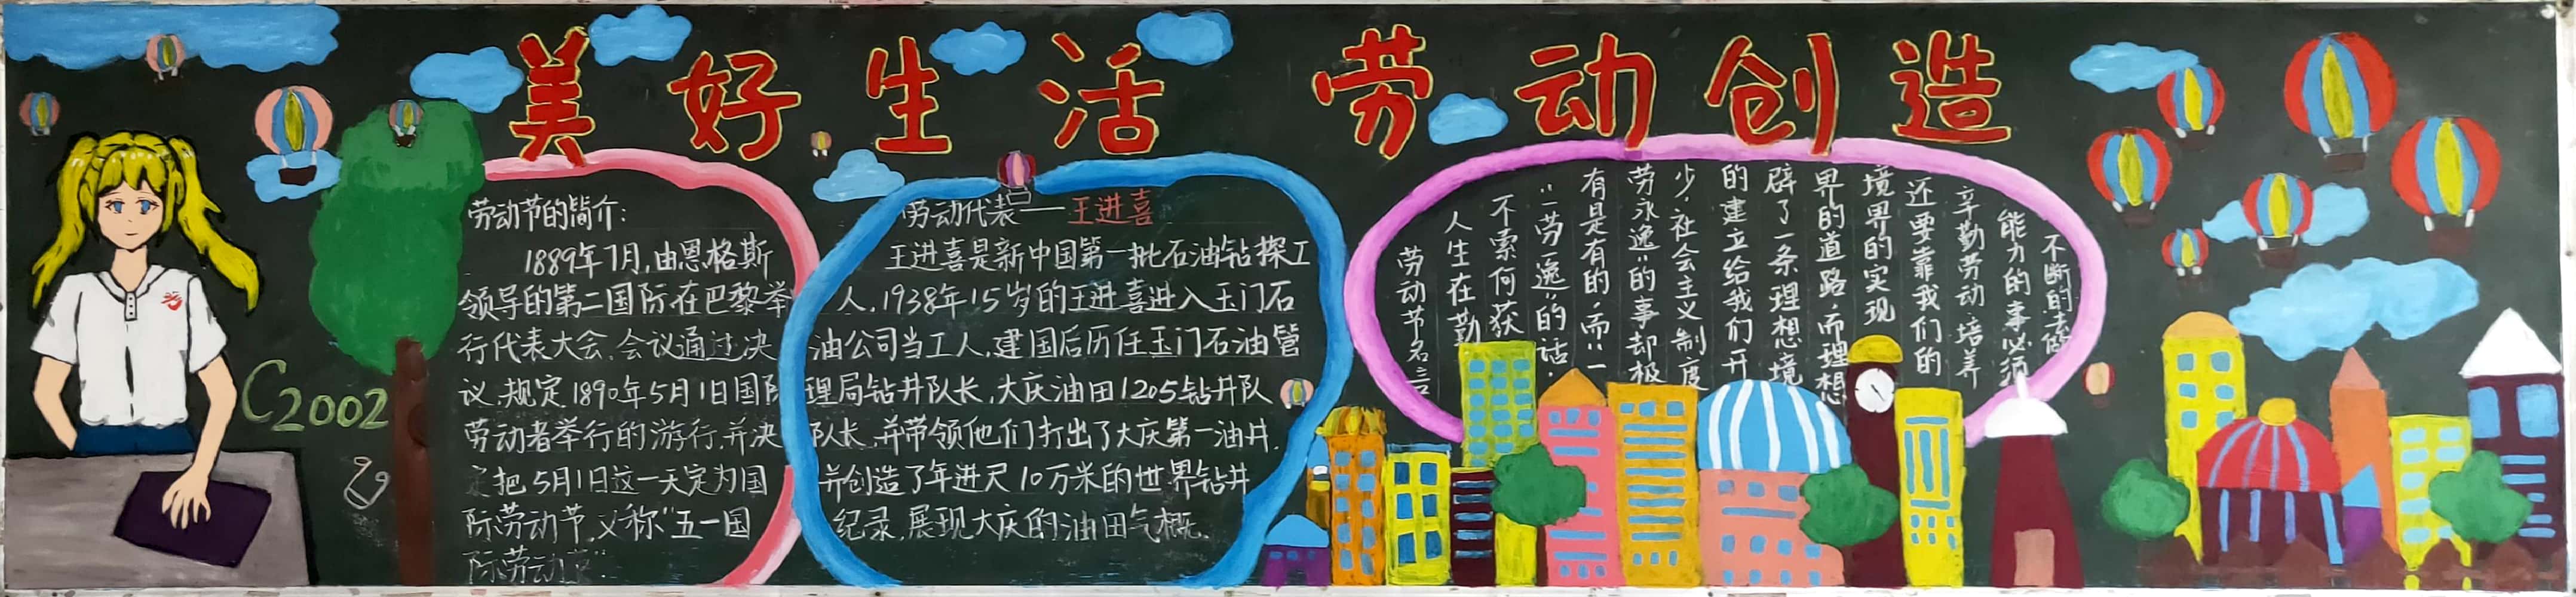 美好生活 劳动创造
劳动节的简介:
1889年7月,由恩格斯
领导的第二国际在巴黎举
行代表大会,会议通过决
议,规定1890年5月1日国际
劳动者举行的游行,并决
定把5月1日这一天定为国
际劳动节,又称“五一国
际劳动节”
C2002
劳动代表——王进喜
王进喜是新中国第一批石油钻探工
人,1938年15岁的王进喜进入玉门石
油公司当工人,建国后历任玉门石油管
理局钻井队长,大庆油田1205钻井队
队长,并带领他们打出了大庆第一油井.
并创造了年进尺10万米的世界钻井
纪录,展现大庆的油田气概.
劳动节名言
人生在勤
不索何获
“一劳逸”的话,
有是有的,而“一
劳永逸”的事却极
少,社会主义制度
的建立给我们开
辟了一条理想境
界的道路,而理想
境界的实现
还要靠我们的
辛勤劳动.培养
能力的事必须
不断的去做